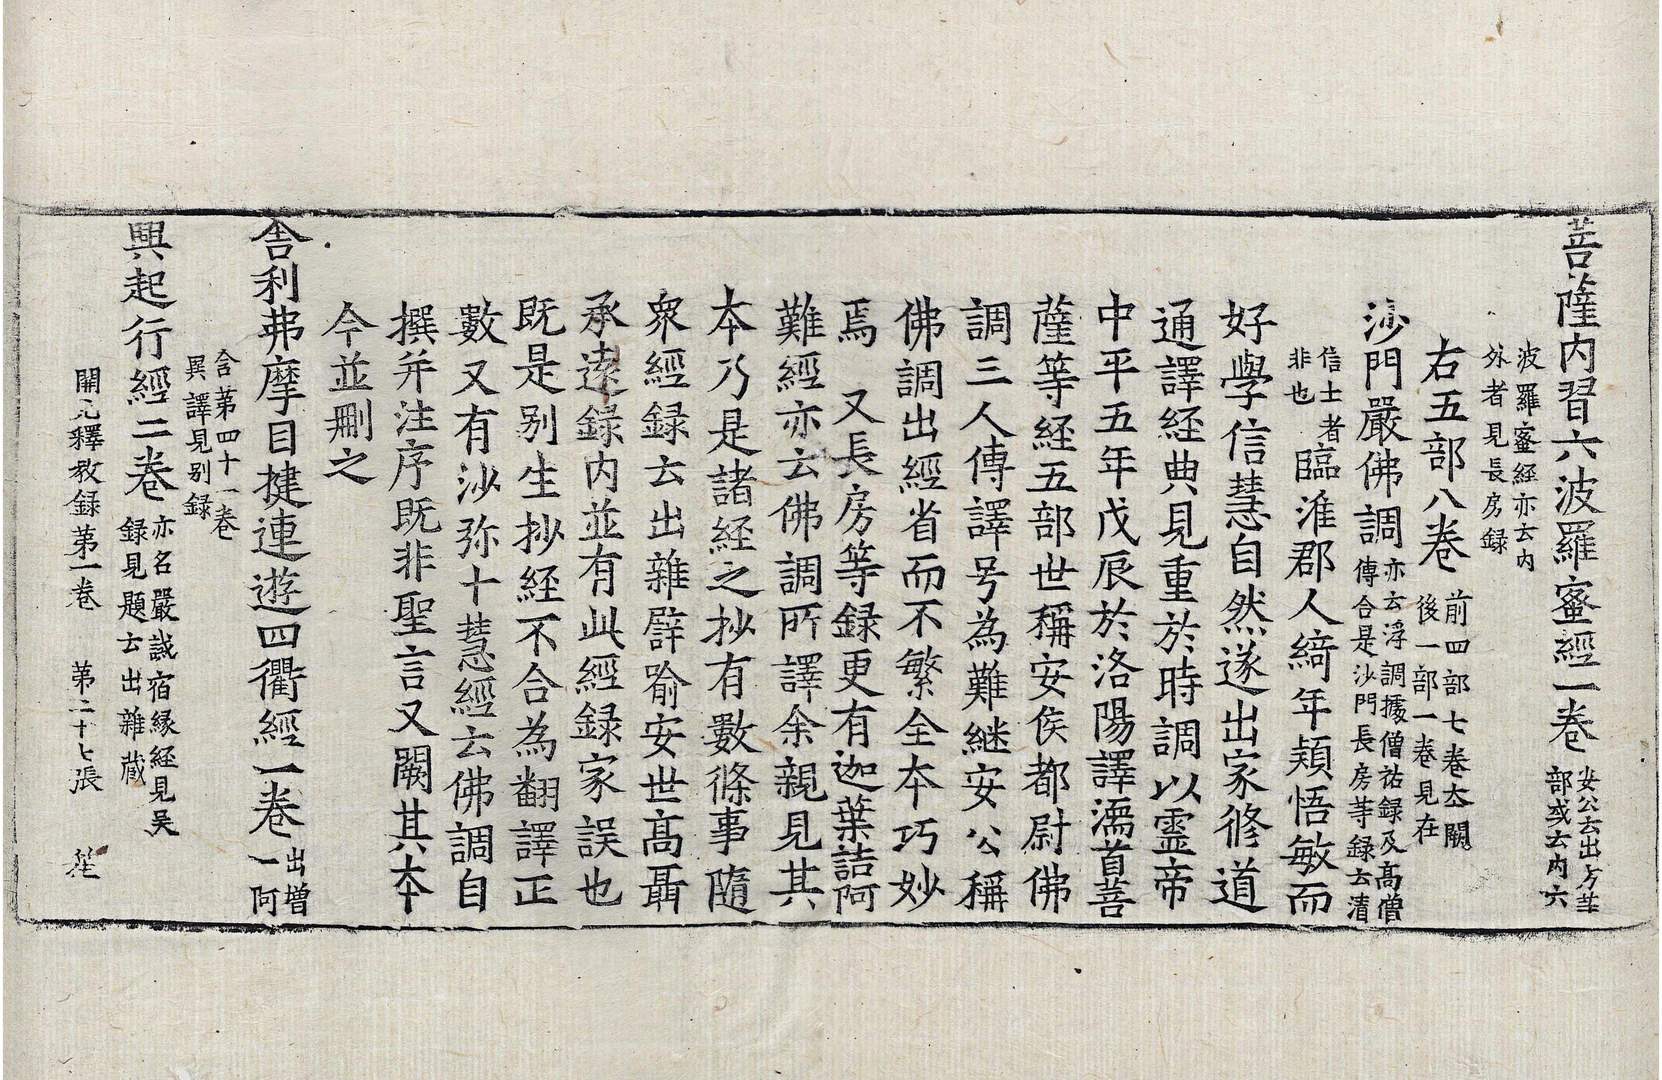 菩薩内習六波羅蜜經一卷 安公云出方等部或云内六
波羅蜜經亦云内外者見長房録
右五部八卷 前四部七卷本闕後一部一卷見在
沙門嚴佛調 亦云浮調據僧祐録及高僧傳合是沙門長房等録云清
信士者非也 臨淮郡人綺年頴悟敏而
好學信慧自然遂出家修道
通譯經典見重於時調以靈帝
中平五年戊辰於洛陽譯濡首菩
薩等経五部世稱安侯都尉佛
調三人傳譯号為難継安公稱
佛調出經省而不繁全本巧妙
焉 又長房等録更有迦葉詰阿
難經亦云佛調所譯余親見其
本乃是諸経之抄有數條事隨
衆經録云出雜譬喻安世高聶
承遠録内並有此經録家誤也
既是别生抄経不合為翻譯正
數又有沙弥十慧經云佛調自
撰并注序既非聖言又闕其本
今並刪之
舎利弗摩目揵連遊四衢經一卷 出增一阿
含第四十一卷異譯見别録
興起行經二卷 亦名嚴誡宿縁経見吴録見題云出雜蔵
開元釋教録第一卷 第二十七張